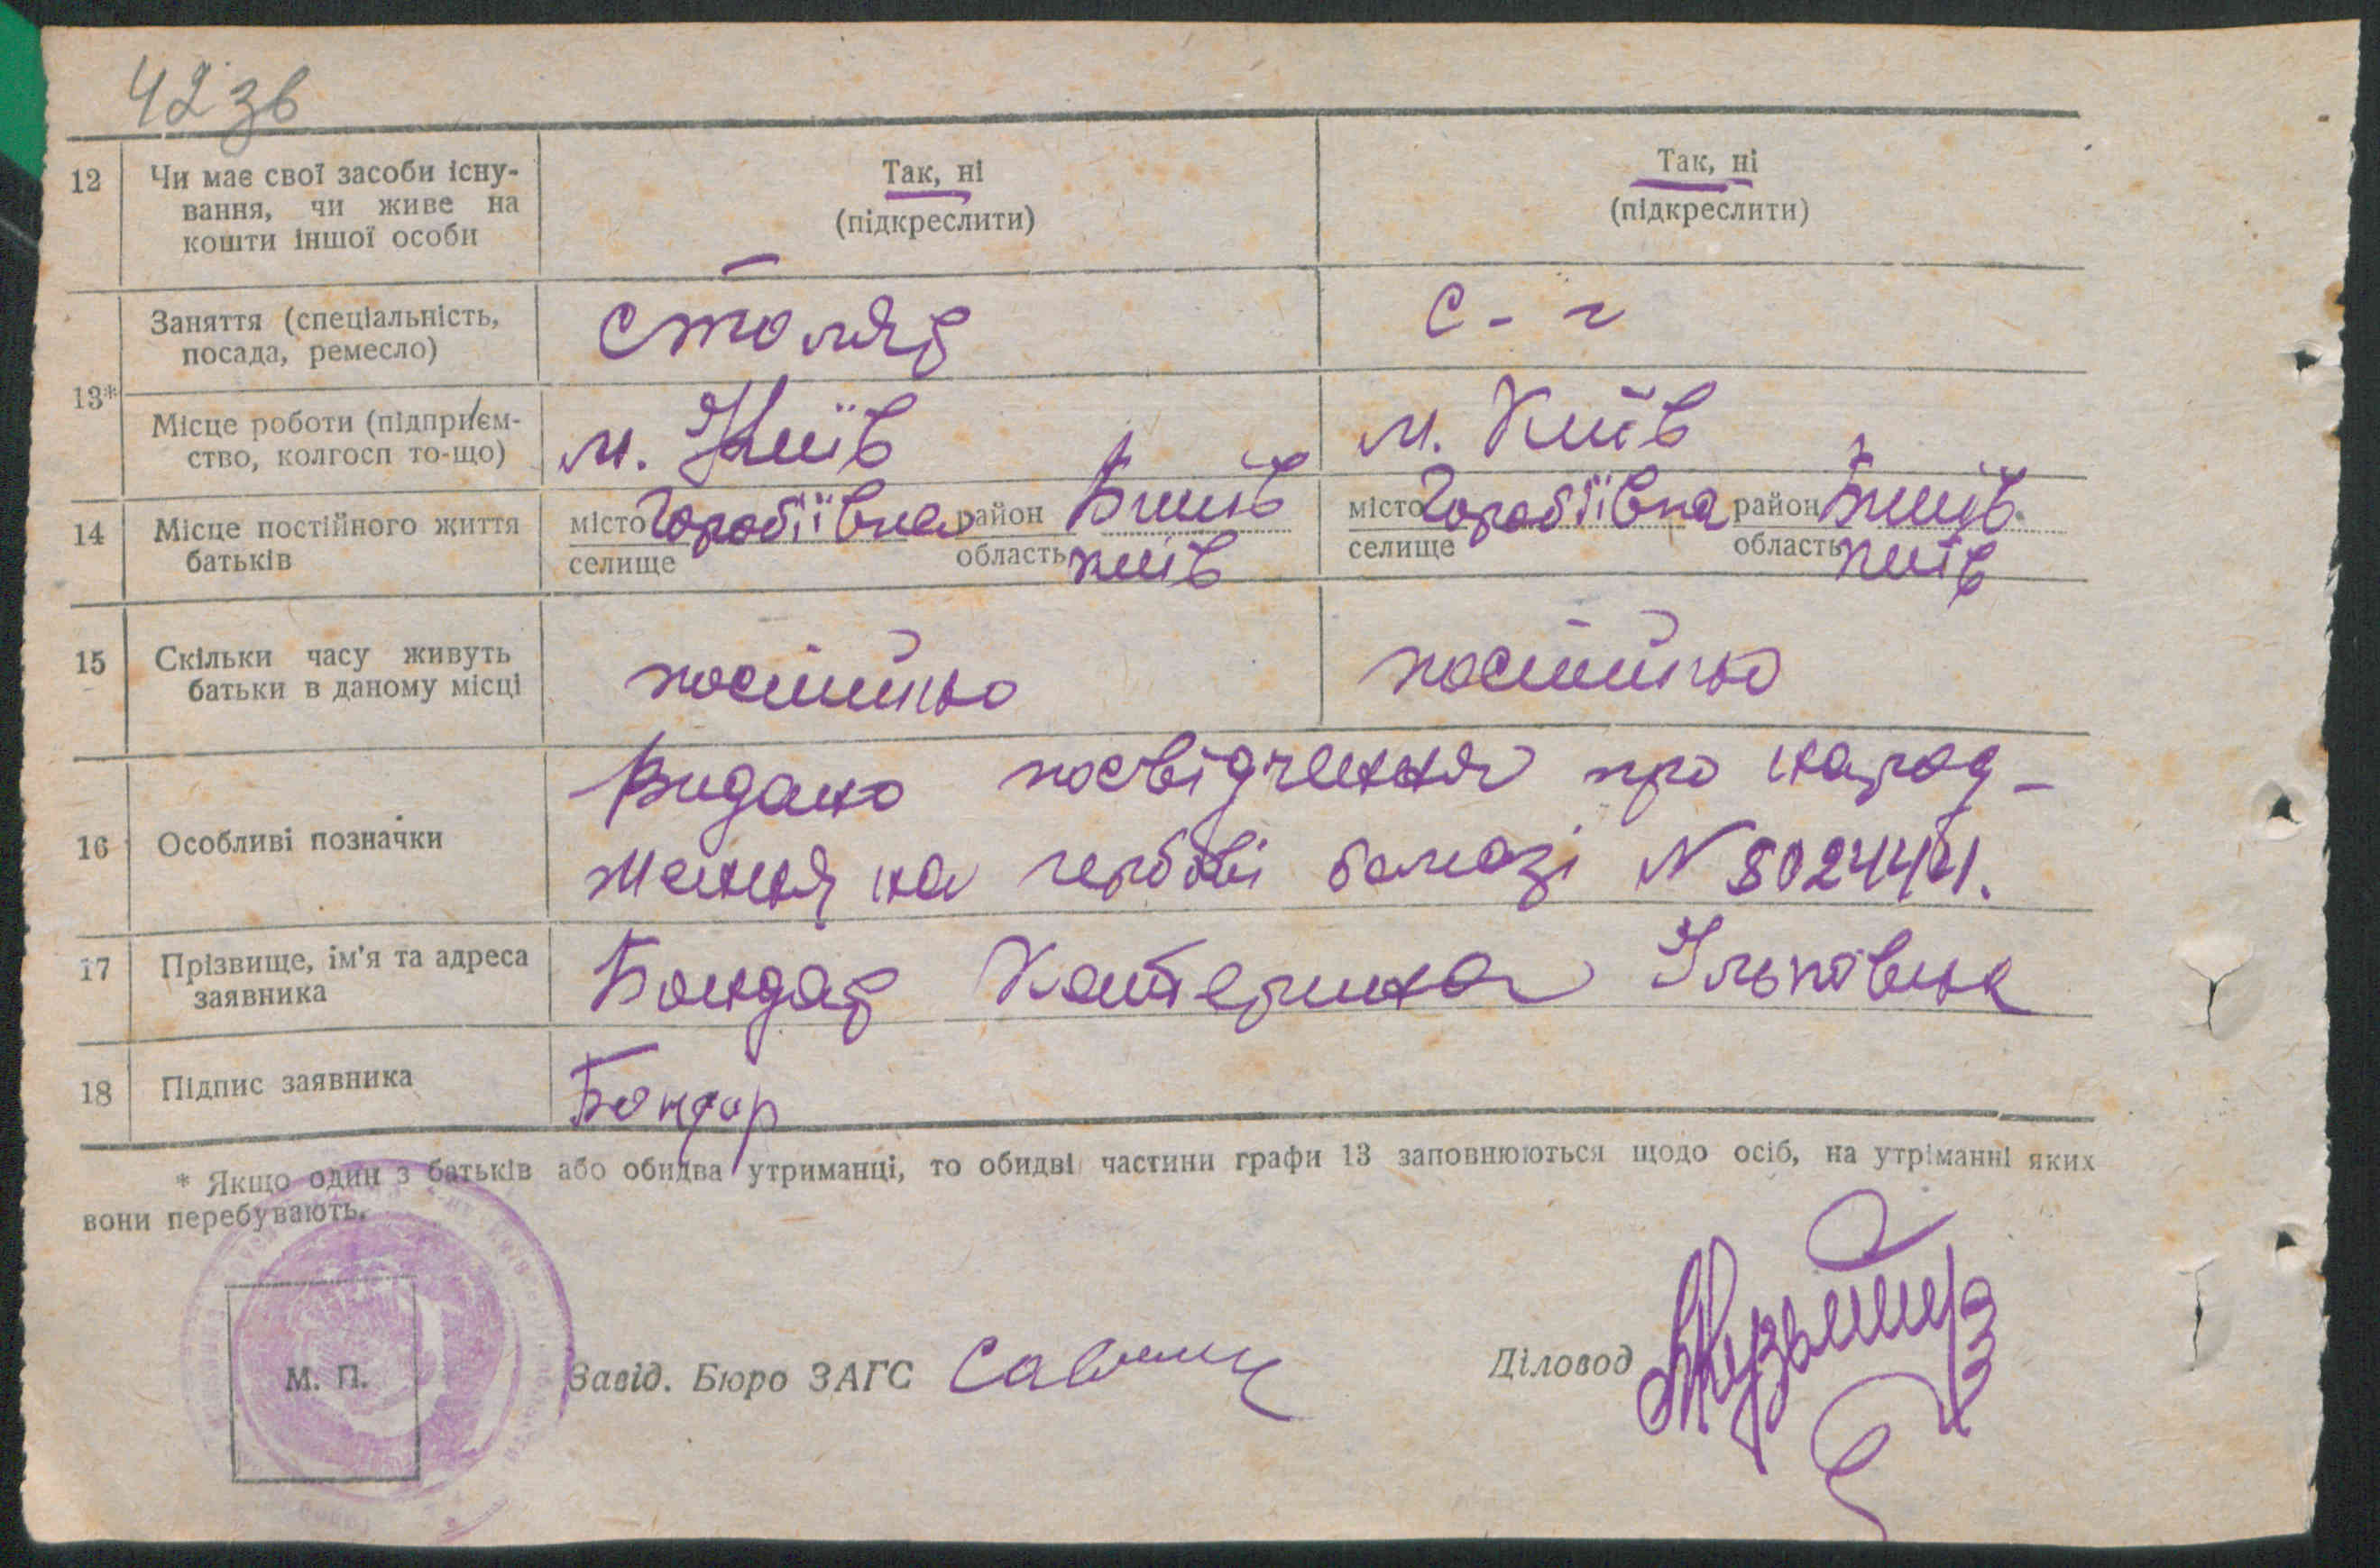 42 зв
12 Чи має свої засоби існу- Так, ні Так, ні
вання, чи живе на (підкреслити) (підкреслити)
кошти іншої особи
13* Заняття (спеціальність, столяр с-г
посада, ремесло)
Місце роботи (підприєм- м. Київ м. Київ
ство, колгосп то-що)
14 Місце постійного життя місто Горобіївка район місто Горобіївка район
батьків селище область Київ селище область Київ
15 Скільки часу живуть постійно постійно
батьки в даному місці
16 Особливі позначки Видано посвідчення про народ-
ження на гербові бомазі N
17 Прізвище, ім'я та адреса Бондар Катерина Ільківна
заявника
18 Підпис заявника Бондар
* Якщо один з батьків або обидва утриманці, то обидві частини графи 13 заповнюються щодо осіб, на утріманні яких
вони перебувають.
М. П. Завід. Бюро ЗАГС Діловод